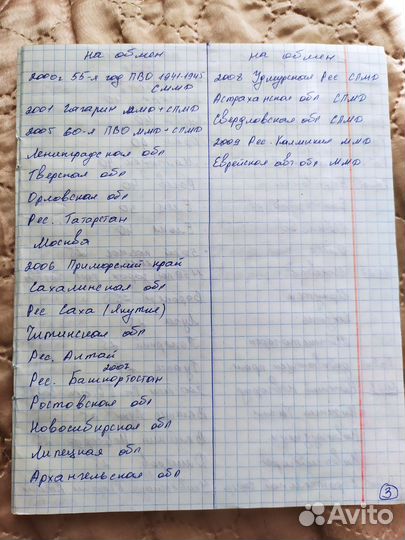 на обмен
2000г 55-я год ПВО 1941-1945
СММД
2001 Гагарин ММД + СПМД
2005 60-я ПВО ММД + СПМД
Ленинградская обл
Тверская обл
Орловская обл
Рес. Татарстан
Москва
2006 Приморский край
Сахалинская обл
Рес Саха (Якутия)
Читинская обл
Рес. Алтай
2007
Рес. Башкортостан
Ростовская обл
Новосибирская обл
Липецкая обл
Архангельская обл
на обмен
2008 Удмурская Рес СПМД
Астраханская обл СПМД
Свердловская обл СПМД
2009 Рес. Калмыкия ММД
Еврейская авт обл ММД
3
Avito